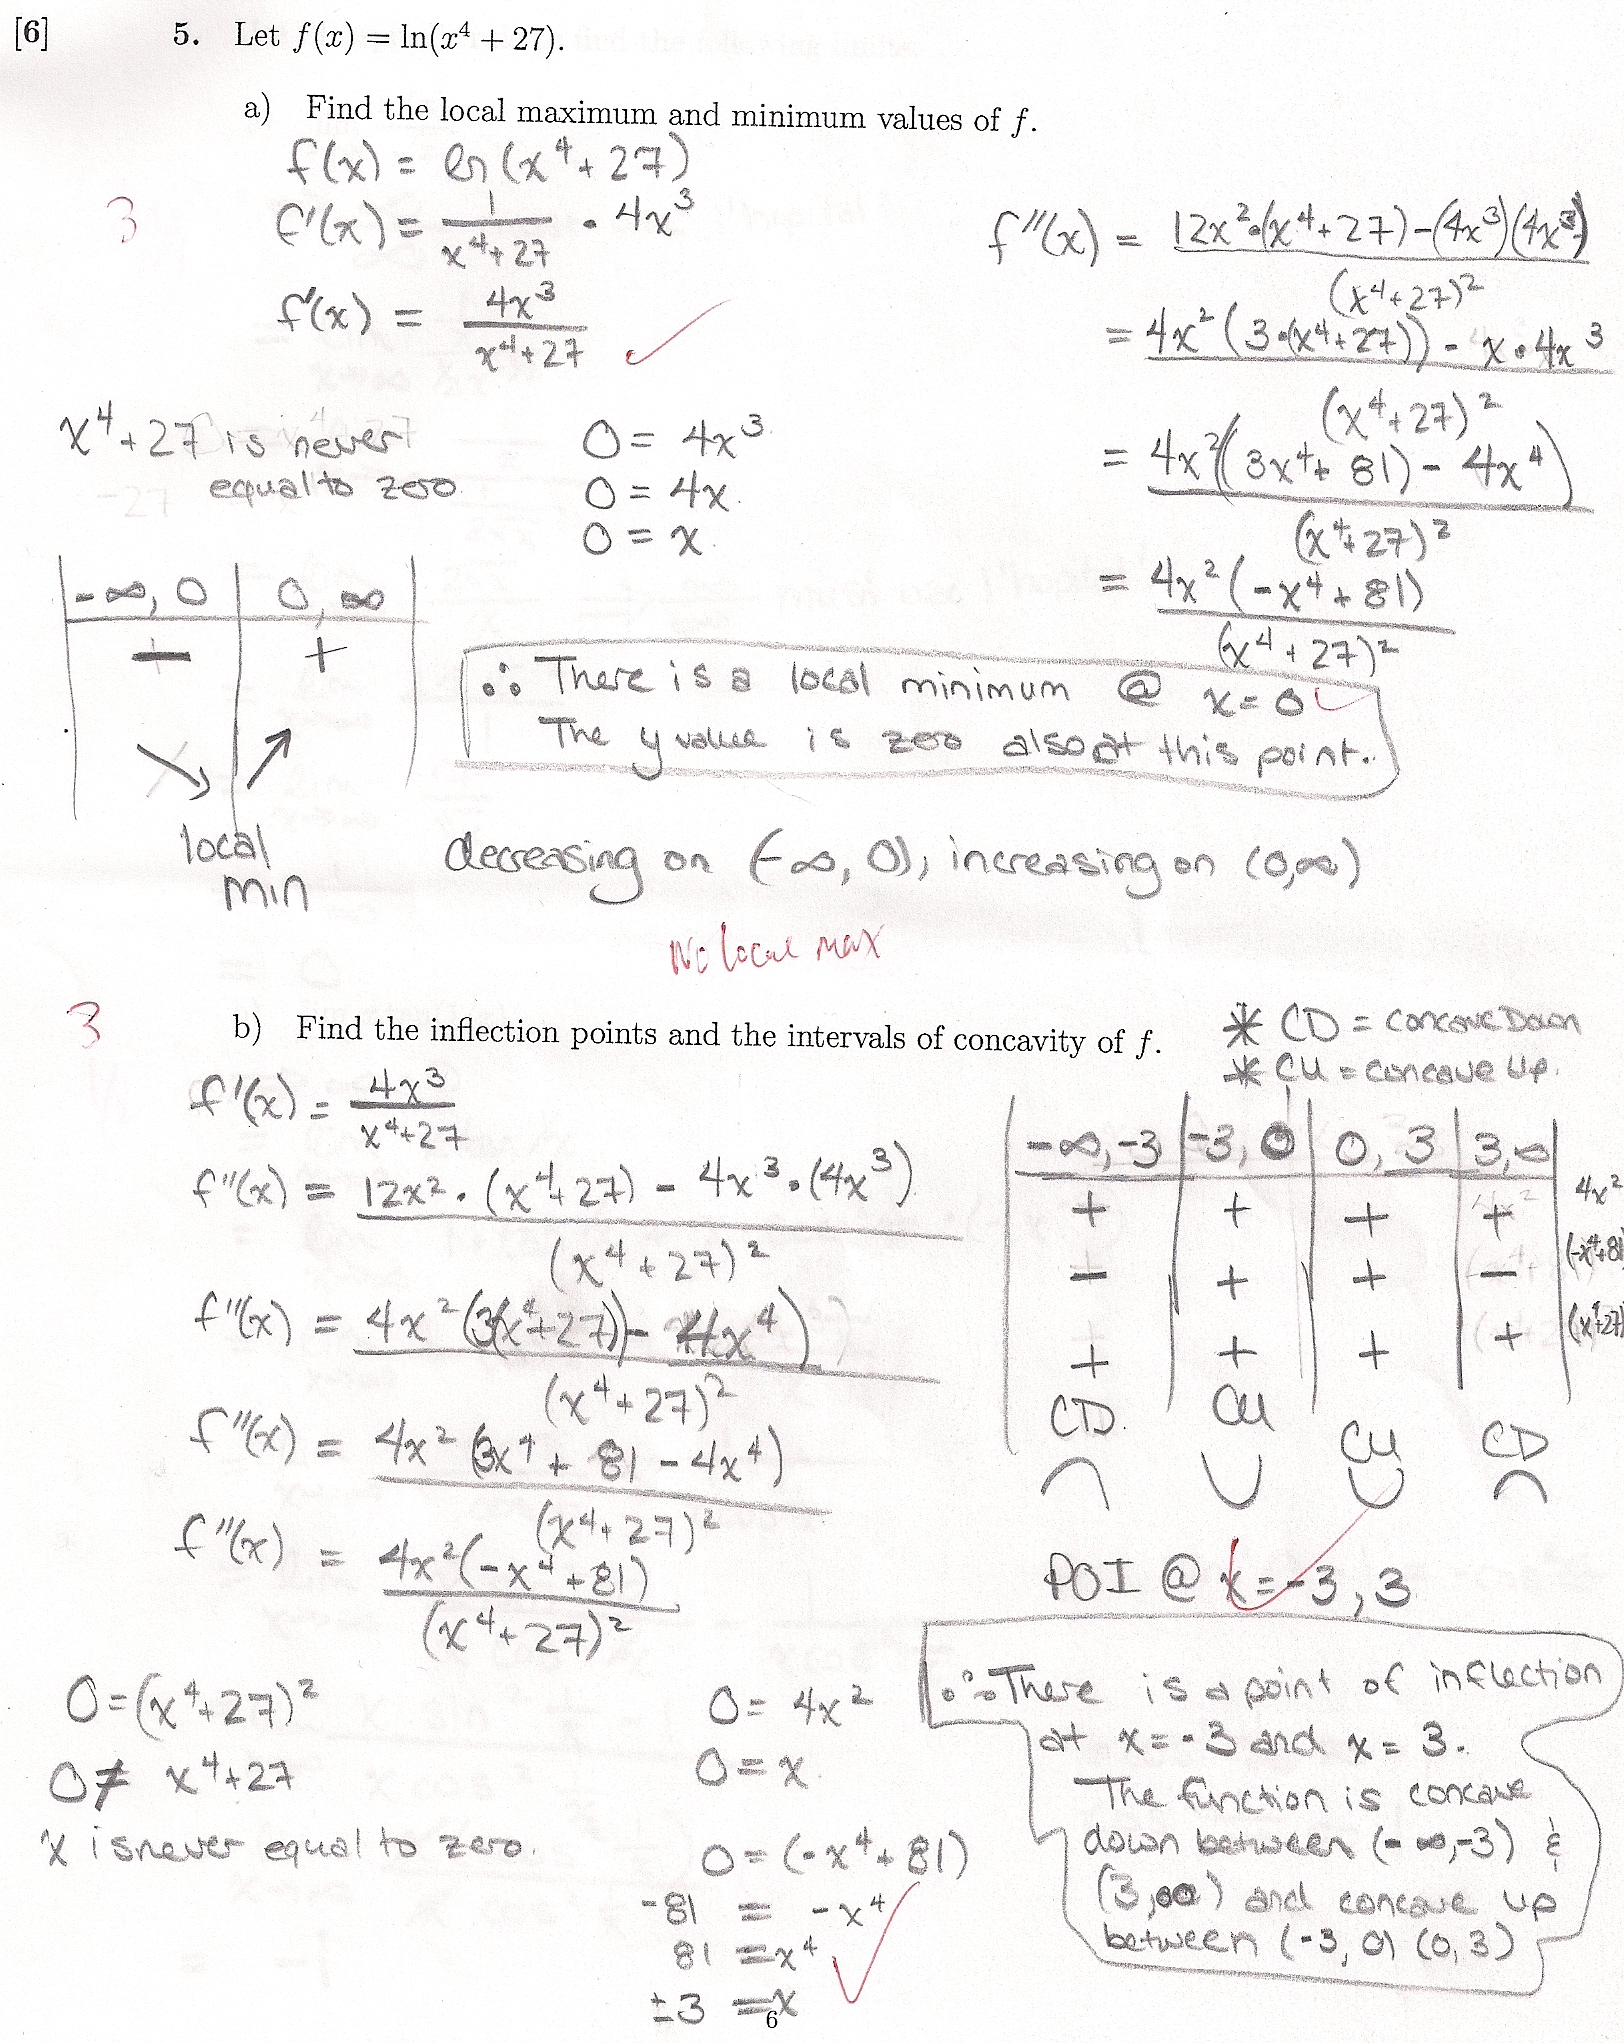 [6] 5. Let f(x) = ln(x⁴ + 27).
a) Find the local maximum and minimum values of f.
f(x) = ln(x⁴ + 27)
3
f'(x) = 1/(x⁴+27) • 4x³
f'(x) = 4x³/(x⁴+27) ✓
x⁴+27 is never
equal to zero
0 = 4x³
0 = 4x
0 = x
f''(x) = (12x²•(x⁴+27)-(4x³)(4x³))/(x⁴+27)²
= (4x²(3•(x⁴+27))- x•4x³)/(x⁴+27)²
= (4x²((3x⁴+81)-4x⁴))/(x⁴+27)²
= (4x²(-x⁴+81))/(x⁴+27)²
-∞, 0 | 0, ∞
- | +
↘ | ↗
local
min
∴ There is a local minimum @ x=0 ✓
The y value is zero also at this point.
decreasing on (-∞, 0), increasing on (0,∞)
No local max
3
b) Find the inflection points and the intervals of concavity of f.
* CD = concave Down
* CU = concave up.
f'(x) = 4x³/(x⁴+27)
f''(x) = (12x² • (x⁴+27) - 4x³•(4x³))/(x⁴+27)²
f''(x) = (4x²(3(x⁴+27))- 4x⁴)/(x⁴+27)²
f''(x) = (4x²(3x⁴+81-4x⁴))/(x⁴+27)²
f''(x) = (4x²(-x⁴+81))/(x⁴+27)²
-∞,-3 | -3, 0 | 0, 3 | 3,∞
+ | + | + | + | 4x²
- | + | + | - | (-x⁴+81
+ | + | + | + | (x⁴+27)
CD. CU CU CD
⌒ ∪ ∪ ⌒
POI @ x=-3, 3 ✓
0=(x⁴+27)²
0≠ x⁴+27
x is never equal to zero.
0= 4x²
0=x
0=(-x⁴+81)
-81 = -x⁴
81 =x⁴ ✓
±3 =x
∴ There is a point of inflection
at x=-3 and x=3.
The function is concave
down between (-∞,-3) &
(3,∞) and concave up
between (-3,0) (0,3)
6